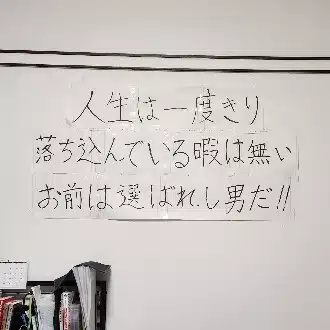 人生は一度きり
落ち込んでいる暇は無い
お前は選ばれし男だ!!